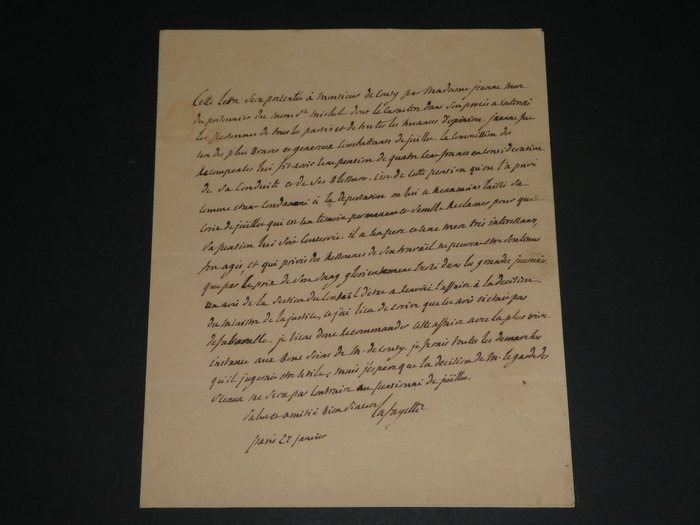 Cette lettre sera présentée à monsieur de Cousy par Madame jeanne mère
du prisonnier du mont St. michel dont le caractère dans son procès a interessé
les personnes de tous les partis et de toutes les nuances d'opinion. jeanne fut
un des plus braves et genereux combattans de juillet. la Commission des
recompenses lui fit avoir une pension de quatre cent francs en consideration
de sa conduite et de ses blessures. C'est de cette pension qu'on l'a privé
comme étant condamné à la deportation on lui a neanmoins laissé sa
croix de juillet qui est un temoin permanent et semble reclamer pour que
sa pension lui soit conservée. il a un pere et une mere très interessans,
fort agés et qui privés des ressources de son travail ne peuvent être soutenus
que par le prix de son sang glorieusement versé dans les grandes journées.
un avis de la section du Conseil d'état a renvoié l'affaire à la decision
du ministre de la justice, et j'ai lieu de croire que cet avis n'etait pas
defavorable. je viens donc recommander cette affaire avec la plus vive
instance aux bons soins de M. de Cousy. je ferais toutes les demarches
qu'il jugerait être utiles; mais j'espere que la decision de M. le garde des
sceaux ne sera pas contraire au pensionné de juillet.
Salut et amitié bien sincere
Lafayette
paris 27 janvier